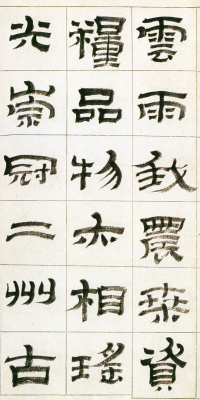 雲雨我農桑資
糧品物亦相瑤
光崇冠二州古